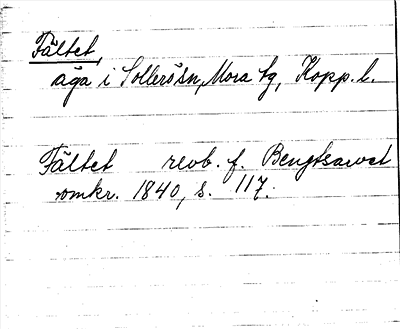 Fältet,
äga i Sollerösn, Mora tg, Kopp. l.
Fältet revb. f. Bengtsarvet
omkr. 1840, s. 117.